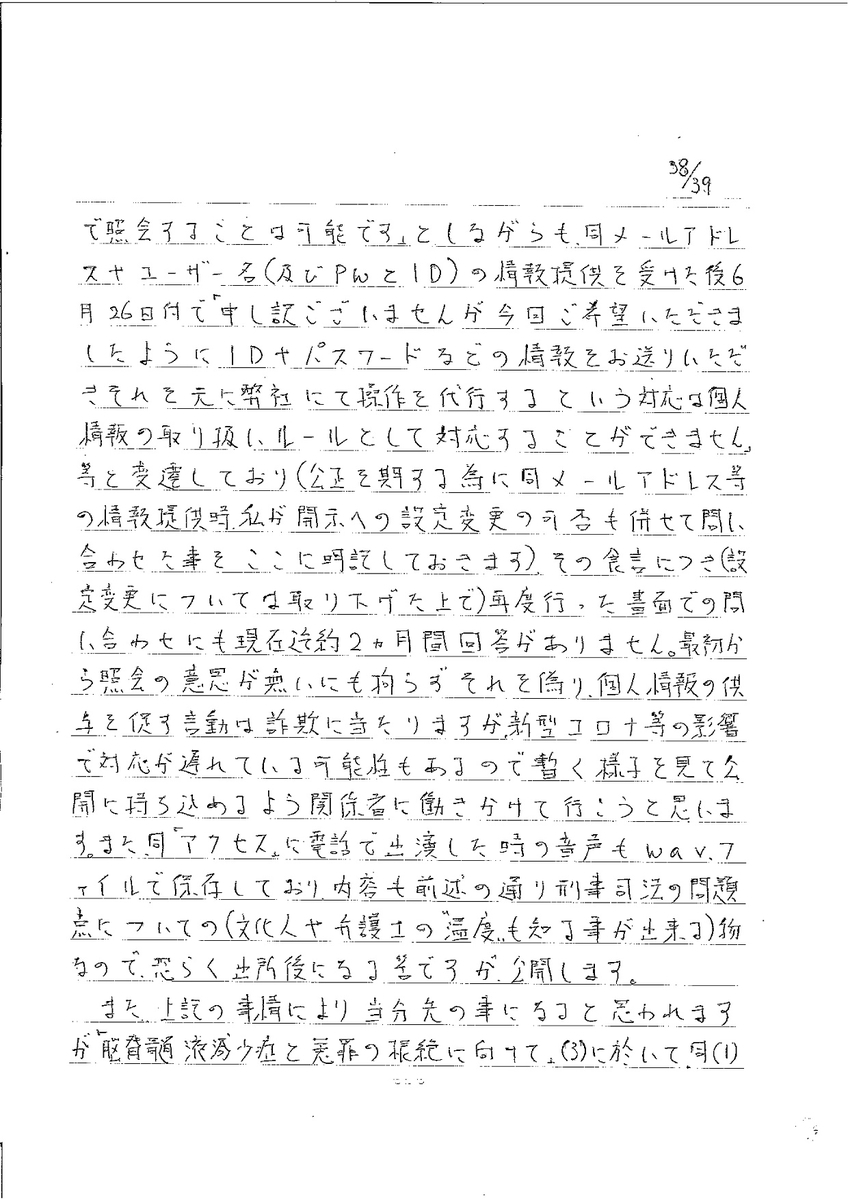 38/39
で照会することは可能です」としながらも、同メールアドレ
スやユーザー名(及びPWとID)の情報提供を受けた後6
月26日付で「申し訳ございませんが今回ご希望いただきま
したようにIDやパスワードなどの情報をお送りいただ
きそれを元に弊社にて操作を代行するという対応は個人
情報の取り扱い、ルールとして対応することができません」
等と変遷しており(公正を期する為に同メールアドレス等
の情報提供時、私が開示への設定変更の可否も併せて問い
合わせた事をここに明記しておきます)、その食言につき(設
定変更については取り下げた上で)再度行った書面での問
い合わせにも現在迄約2ヵ月間回答がありません。最初か
ら照会の意思が無いにも拘らずそれを偽り、個人情報の供
与を促す言動は詐欺に当たりますが、新型コロナ等の影響
で対応が遅れている可能性もあるので暫く様子を見て公
開に持ち込めるよう関係者に働きかけて行こうと思いま
す。また、同「アクセス」に電話で出演した時の音声もwav.フ
ァイルで保存しており、内容も前述の通り刑事司法の問題
点についての(文化人や弁護士の"温度"も知る事が出来る)物
なので、恐らく出所後になる筈ですが、公開します。
また、上記の事情により当分先の事になると思われます
が「脳脊髄液減少症と冤罪の根絶に向けて」(3)に於いて同(1)